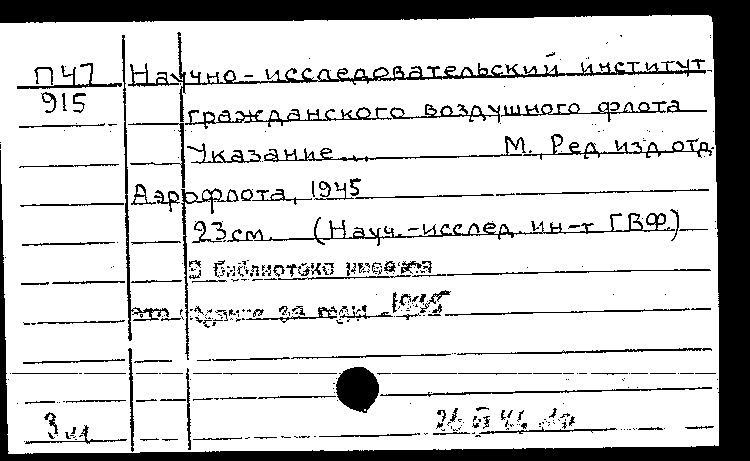 П47 Научно-исследовательский институт
915 гражданского воздушного флота
Указание... М., Ред. изд. отд.
Аэрофлота, 1945
23см. (Науч.-исслед. ин-т ГВФ.)
В библиотеке имеется
это издание за годы 1945